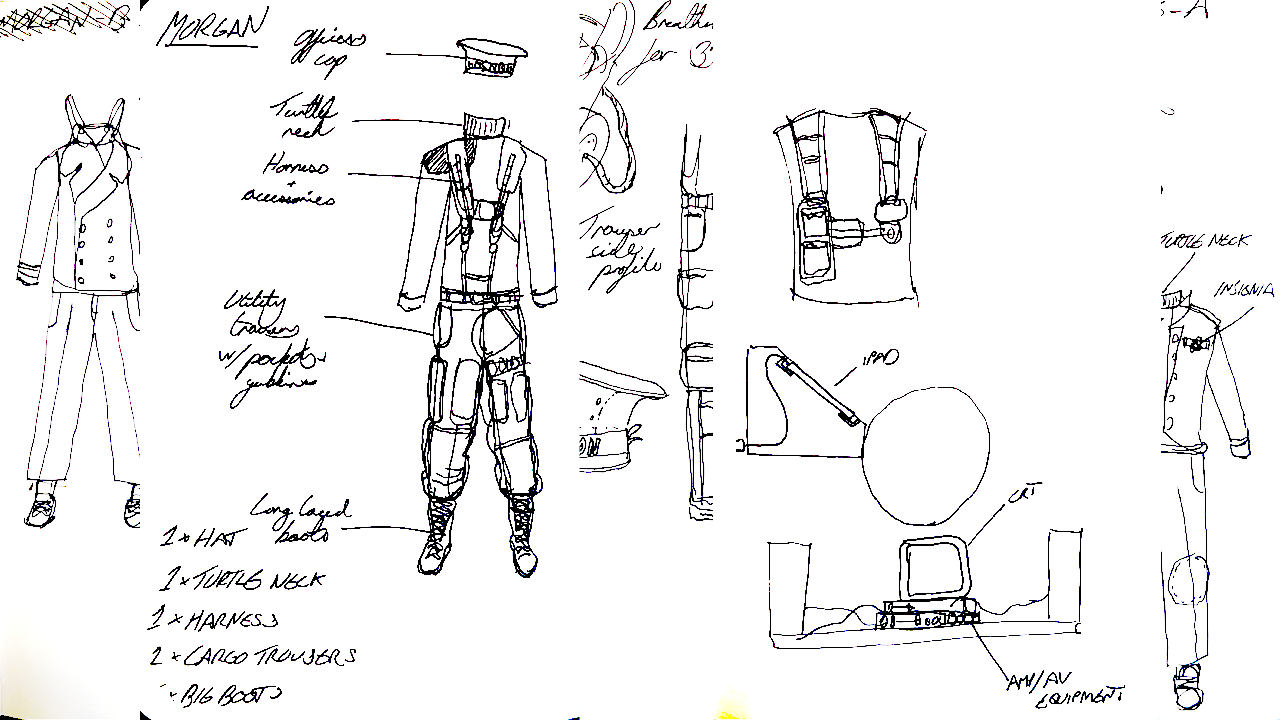 MORGAN-B
MORGAN
officers
cap
Turtle
neck
Harness
+
accessories
Utility
trousers
w/ pockets +
1 x HAT
Long laced
boots
1 x TURTLE NECK
1 x HARNESS
2 x CARGO TROUSERS
x BIG BOOTS
for
Trouser
side
profile
iPAD
CRT
AMP/AV
EQUIPMENT
S-A
TURTLE NECK
INSIGNIA